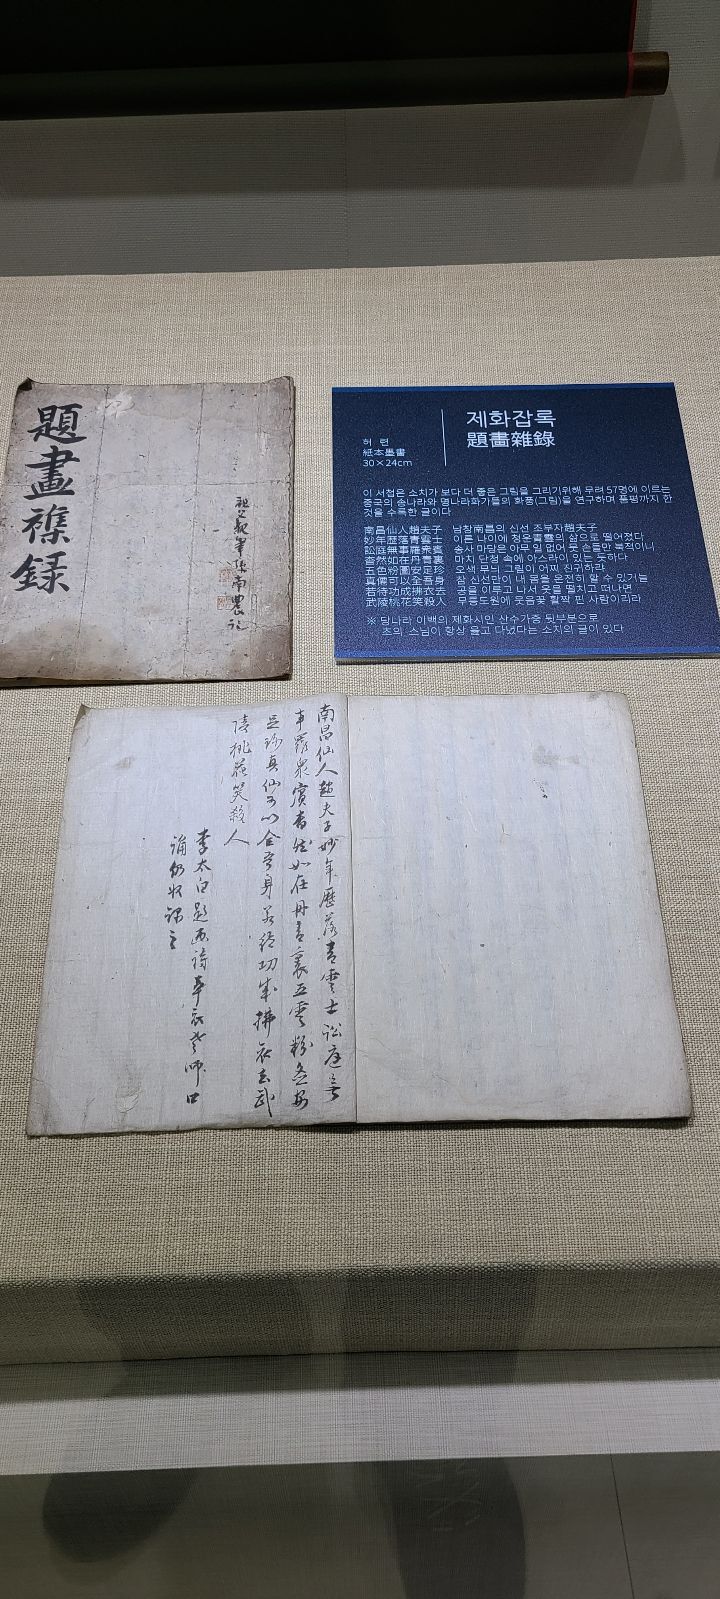 題畫襍錄
祖父親筆孫南農記
제화잡록
題畫雜錄
허 련
紙本墨書
30×24cm
이 서첩은 소치가 보다 더 좋은 그림을 그리기위해 무려 57명에 이르는
중국의 송나라와 명나라화가들의 화풍(그림)을 연구하며 품평까지 한
것을 수록한 글이다
南昌仙人趙夫子 남창南昌의 신선 조부자趙夫子
妙年歷落青雲士 이른 나이에 청운靑雲의 삶으로 떨어졌다
訟庭無事羅衆賓 송사 마당은 아무 일 없어 뭇 손들만 북적이니
杳然如在丹青裏 마치 단청 속에 아스라이 있는 듯하다
五色粉圖安足珍 오색 무늬 그림이 어찌 진귀하랴
真僊可以全吾身 참 신선만이 내 몸을 온전히 할 수 있거늘
若待功成拂衣去 공을 이루고 나서 옷을 떨치고 떠나면
武陵桃花笑殺人 무릉도원에 웃음꽃 활짝 핀 사람이리라
※ 당나라 이백의 제화시인 산수가중 뒷부분으로
초의 스님이 항상 읊고 다녔다는 소치의 글이 있다
南昌仙人趙夫子妙年歷落青雲士訟庭無
事羅衆賓杳然如在丹青裏五雲粉圖安
足珍真仙可以全吾身若待功成拂衣去武
陵桃花笑殺人
李太白題画詩草衣老師口
誦仍收錄之